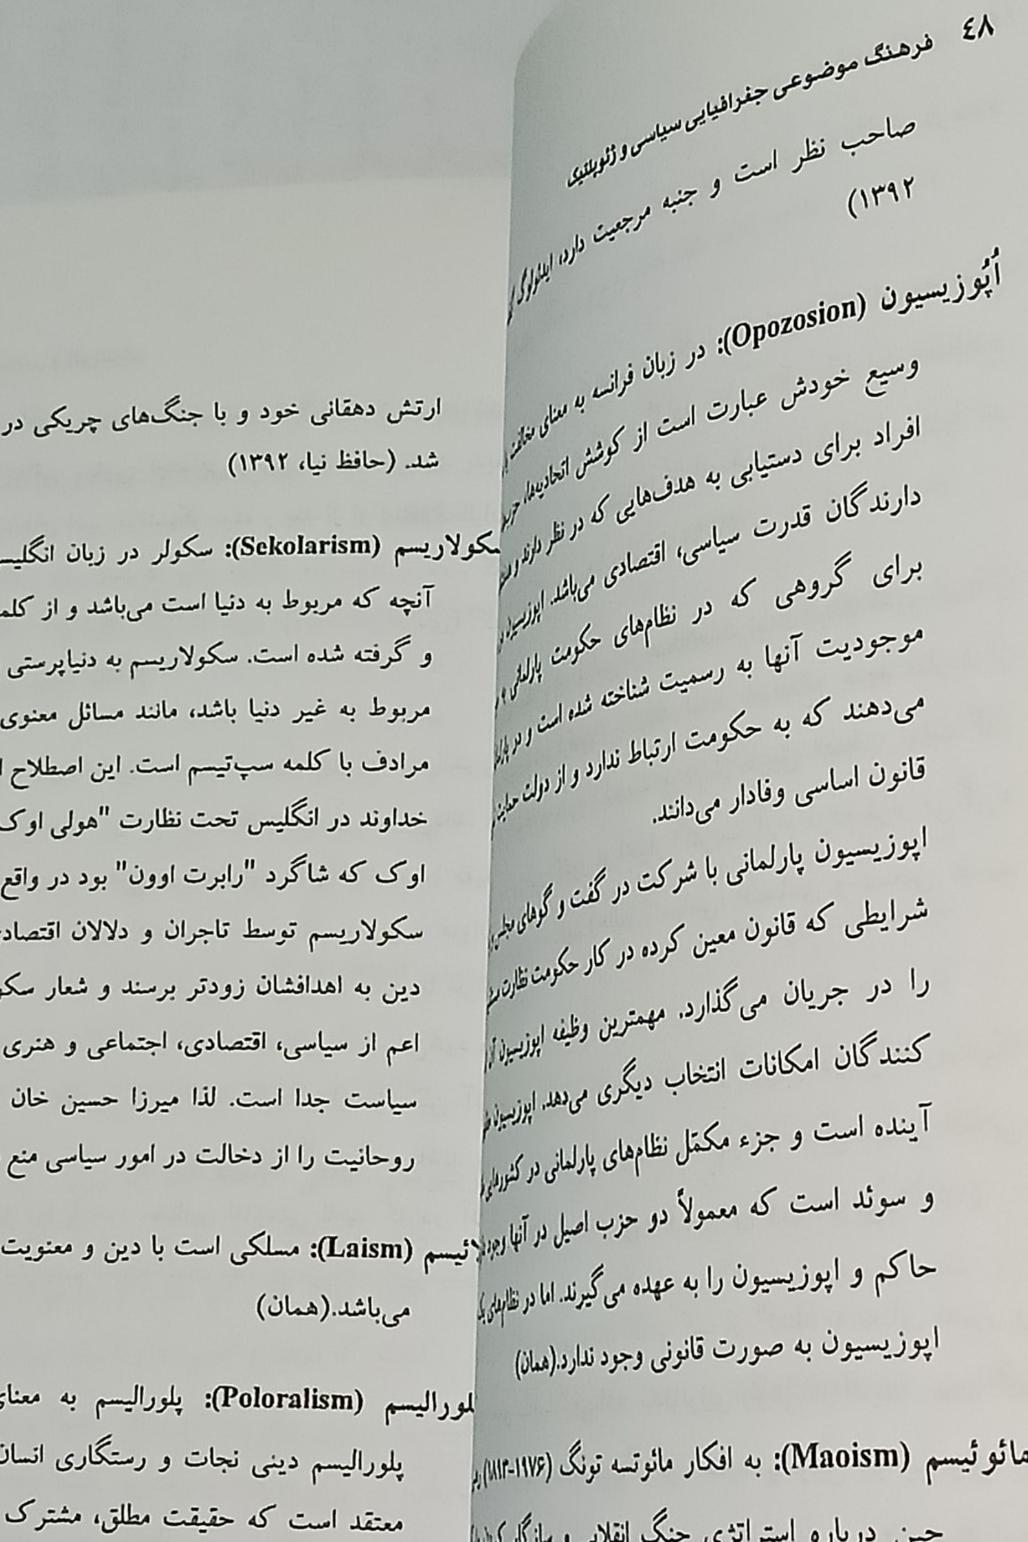 ۴۸
فرهنگ موضوعی جغرافیایی سیاسی و ژئوپلتیک
صاحب نظر است و جنبه مرجعیت دارد، ایدئولوگ
۱۳۹۲)
اُپُوزیسیون (Opozosion): در زبان فرانسه به معنای مخالفت
وسیع خودش عبارت است از کوشش اتحادیه‌ها،
افراد برای دستیابی به هدف‌هایی که در نظر دارند و
دارندگان قدرت سیاسی، اقتصادی می‌باشد. اپوزیسیون
برای گروهی که در نظام‌های حکومت پارلمانی
موجودیت آنها به رسمیت شناخته شده است و در
می‌دهند که به حکومت ارتباط ندارد و از دولت حمایت
قانون اساسی وفادار می‌دانند.
اپوزیسیون پارلمانی با شرکت در گفت و گوهای مجلس
شرایطی که قانون معین کرده در کار حکومت نظارت
را در جریان می‌گذارد. مهمترین وظیفه اپوزیسیون آن
کنندگان امکانات انتخاب دیگری می‌دهد. اپوزیسیون
آینده است و جزء مکمّل نظام‌های پارلمانی در کشورهایی
و سوئد است که معمولاً دو حزب اصیل در آنها وجود
حاکم و اپوزیسیون را به عهده می‌گیرند. اما در نظام‌های
اپوزیسیون به صورت قانونی وجود ندارد.(همان)
مائوئیسم (Maoism): به افکار مائوتسه تونگ (۱۹۷۶-۱۸۱۳)
چین درباره استراتژی جنگ انقلابی و سازگار
ارتش دهقانی خود و با جنگ‌های چریکی در
شد. (حافظ نیا، ۱۳۹۲)
سکولاریسم (Sekolarism): سکولر در زبان
آنچه که مربوط به دنیا است می‌باشد و از
و گرفته شده است. سکولاریسم به دنیاپرستی
مربوط به غیر دنیا باشد، مانند مسائل معنوی
مرادف با کلمه سپ‌تیسم است. این اصطلاح
خداوند در انگلیس تحت نظارت "هولی اوک
اوک که شاگرد "رابرت اوون" بود در واقع
سکولاریسم توسط تاجران و دلالان
دین به اهدافشان زودتر برسند و شعار
اعم از سیاسی، اقتصادی، اجتماعی و هنری
سیاست جدا است. لذا میرزا حسین خان
روحانیت را از دخالت در امور سیاسی منع
لائیسم (Laism): مسلکی است با دین و معنویت
می‌باشد.(همان)
پلورالیسم (Poloralism): پلورالیسم به معنای
پلورالیسم دینی نجات و رستگاری انسان
معتقد است که حقیقت مطلق، مشترک